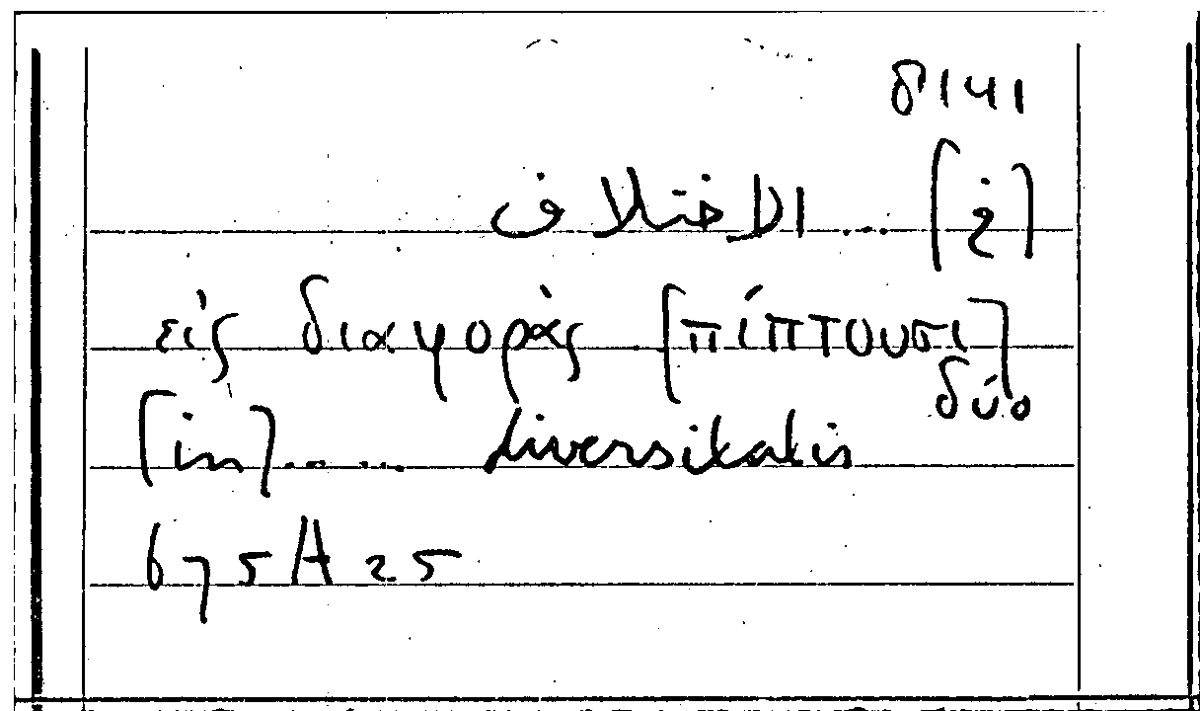 8141
[في] ... الاختلاف
εἰς διαφορὰς [πίπτουσι]
δύο
[in]..... diversitatis
675A25